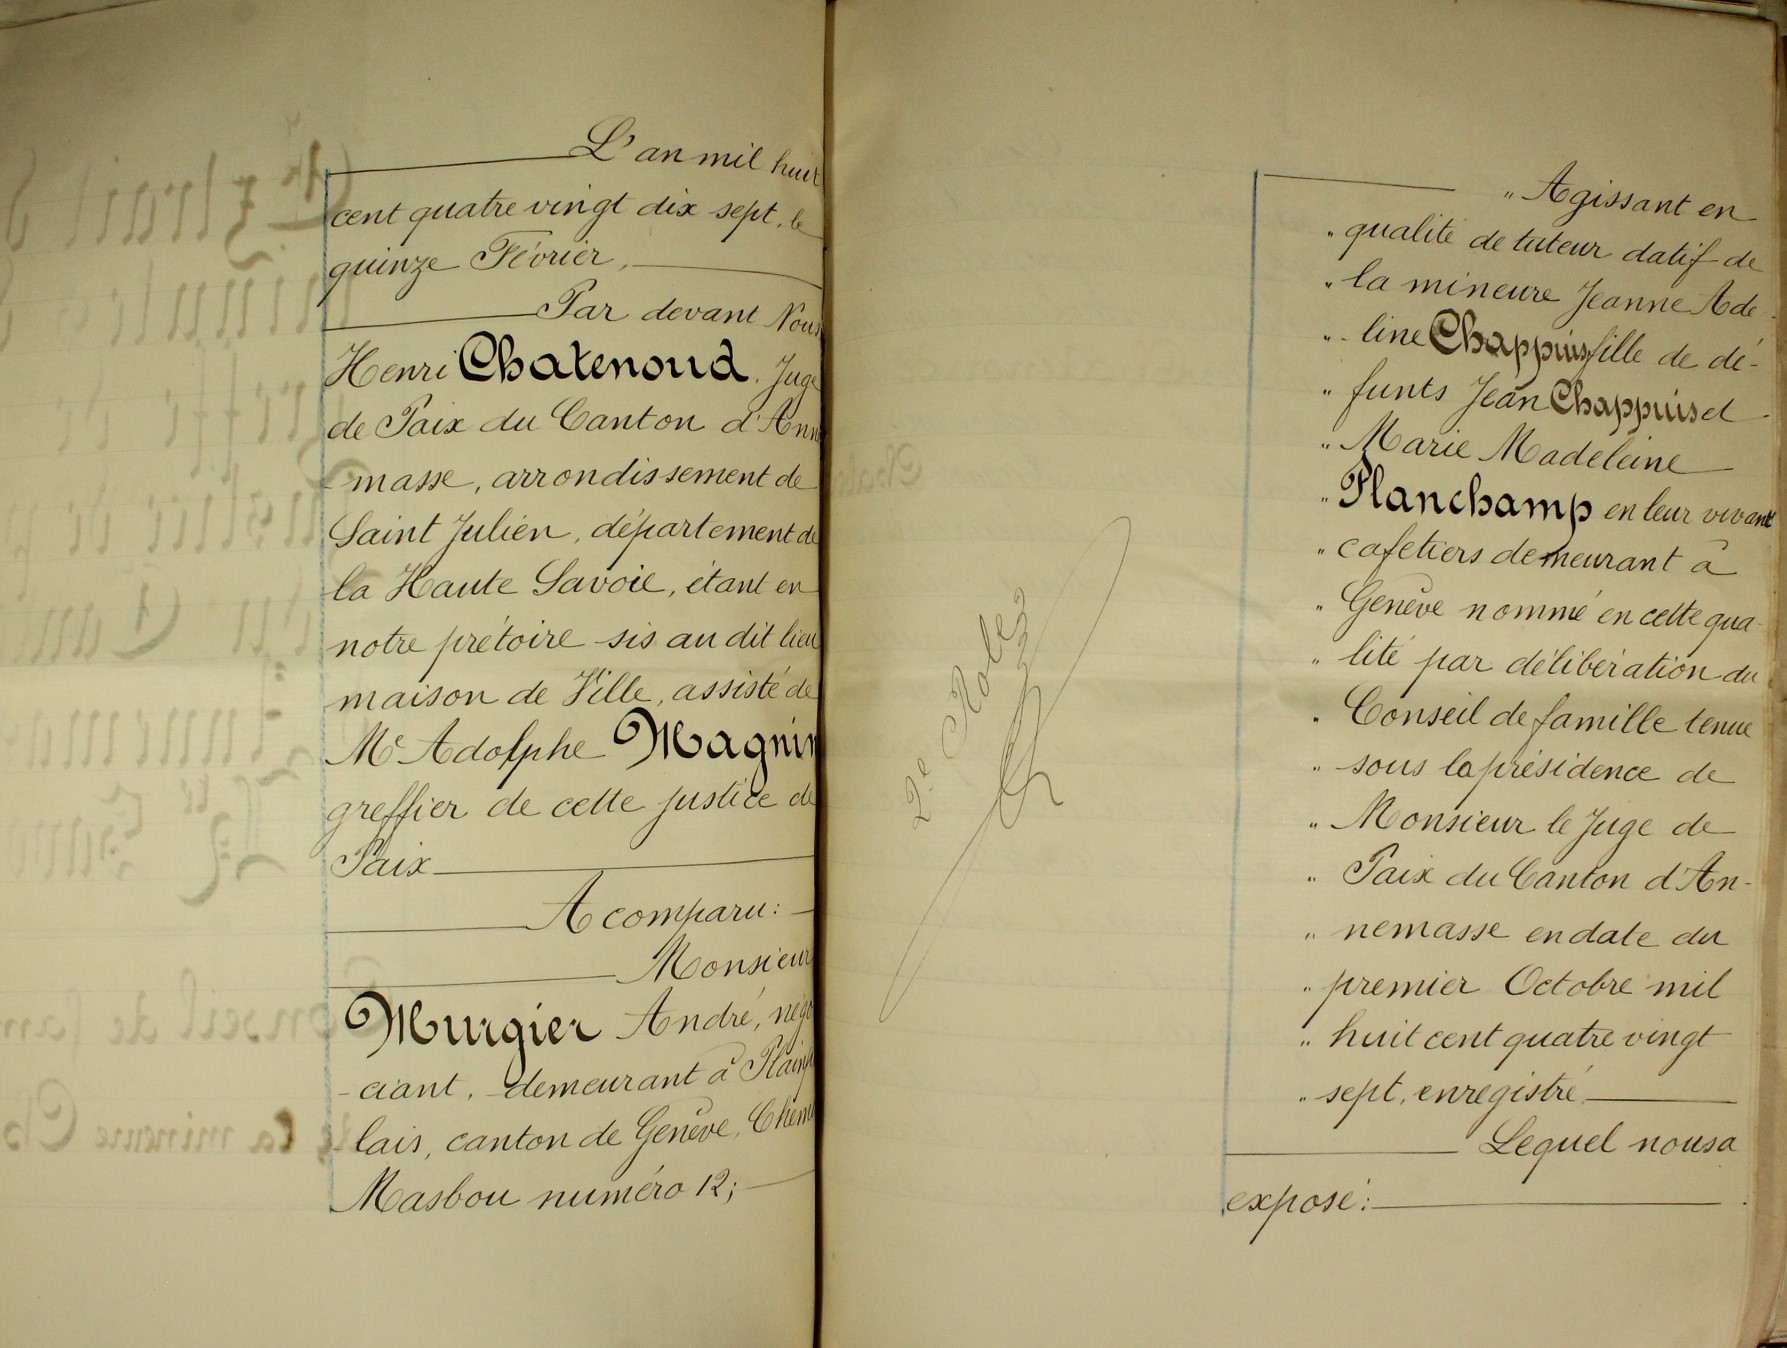 L'an mil huit
cent quatre vingt dix sept, le
quinze Février,
Par devant Nous
Henri Chatenoud, Juge
de Paix du Canton d'Ann
masse, arrondissement de
Saint Julien, département de
la Haute Savoie, étant en
notre prétoire sis au dit lieu
maison de Ville, assisté de
Me Adolphe Magnin
greffier de cette justice de
Paix
A comparu:
Monsieur
Murgier André, négo
-ciant, demeurant à Plainpa
lais, canton de Genève, Chem
Masbou numéro 12;
2e Rôle
" Agissant en
" qualité de tuteur datif de
" la mineure Jeanne Ade
" line Chappuis fille de dé-
" funts Jean Chappuis et
" Marie Madeleine
" Planchamp en leur vivant
" cafetiers demeurant à
" Genève nommé en cette qua
" lité par délibération du
" Conseil de famille tenue
" sous la présidence de
" Monsieur le Juge de
" Paix du Canton d'An-
" nemasse en date du
" premier Octobre mil
" huit cent quatre vingt
" sept, enregistré
Lequel nous a
exposé: